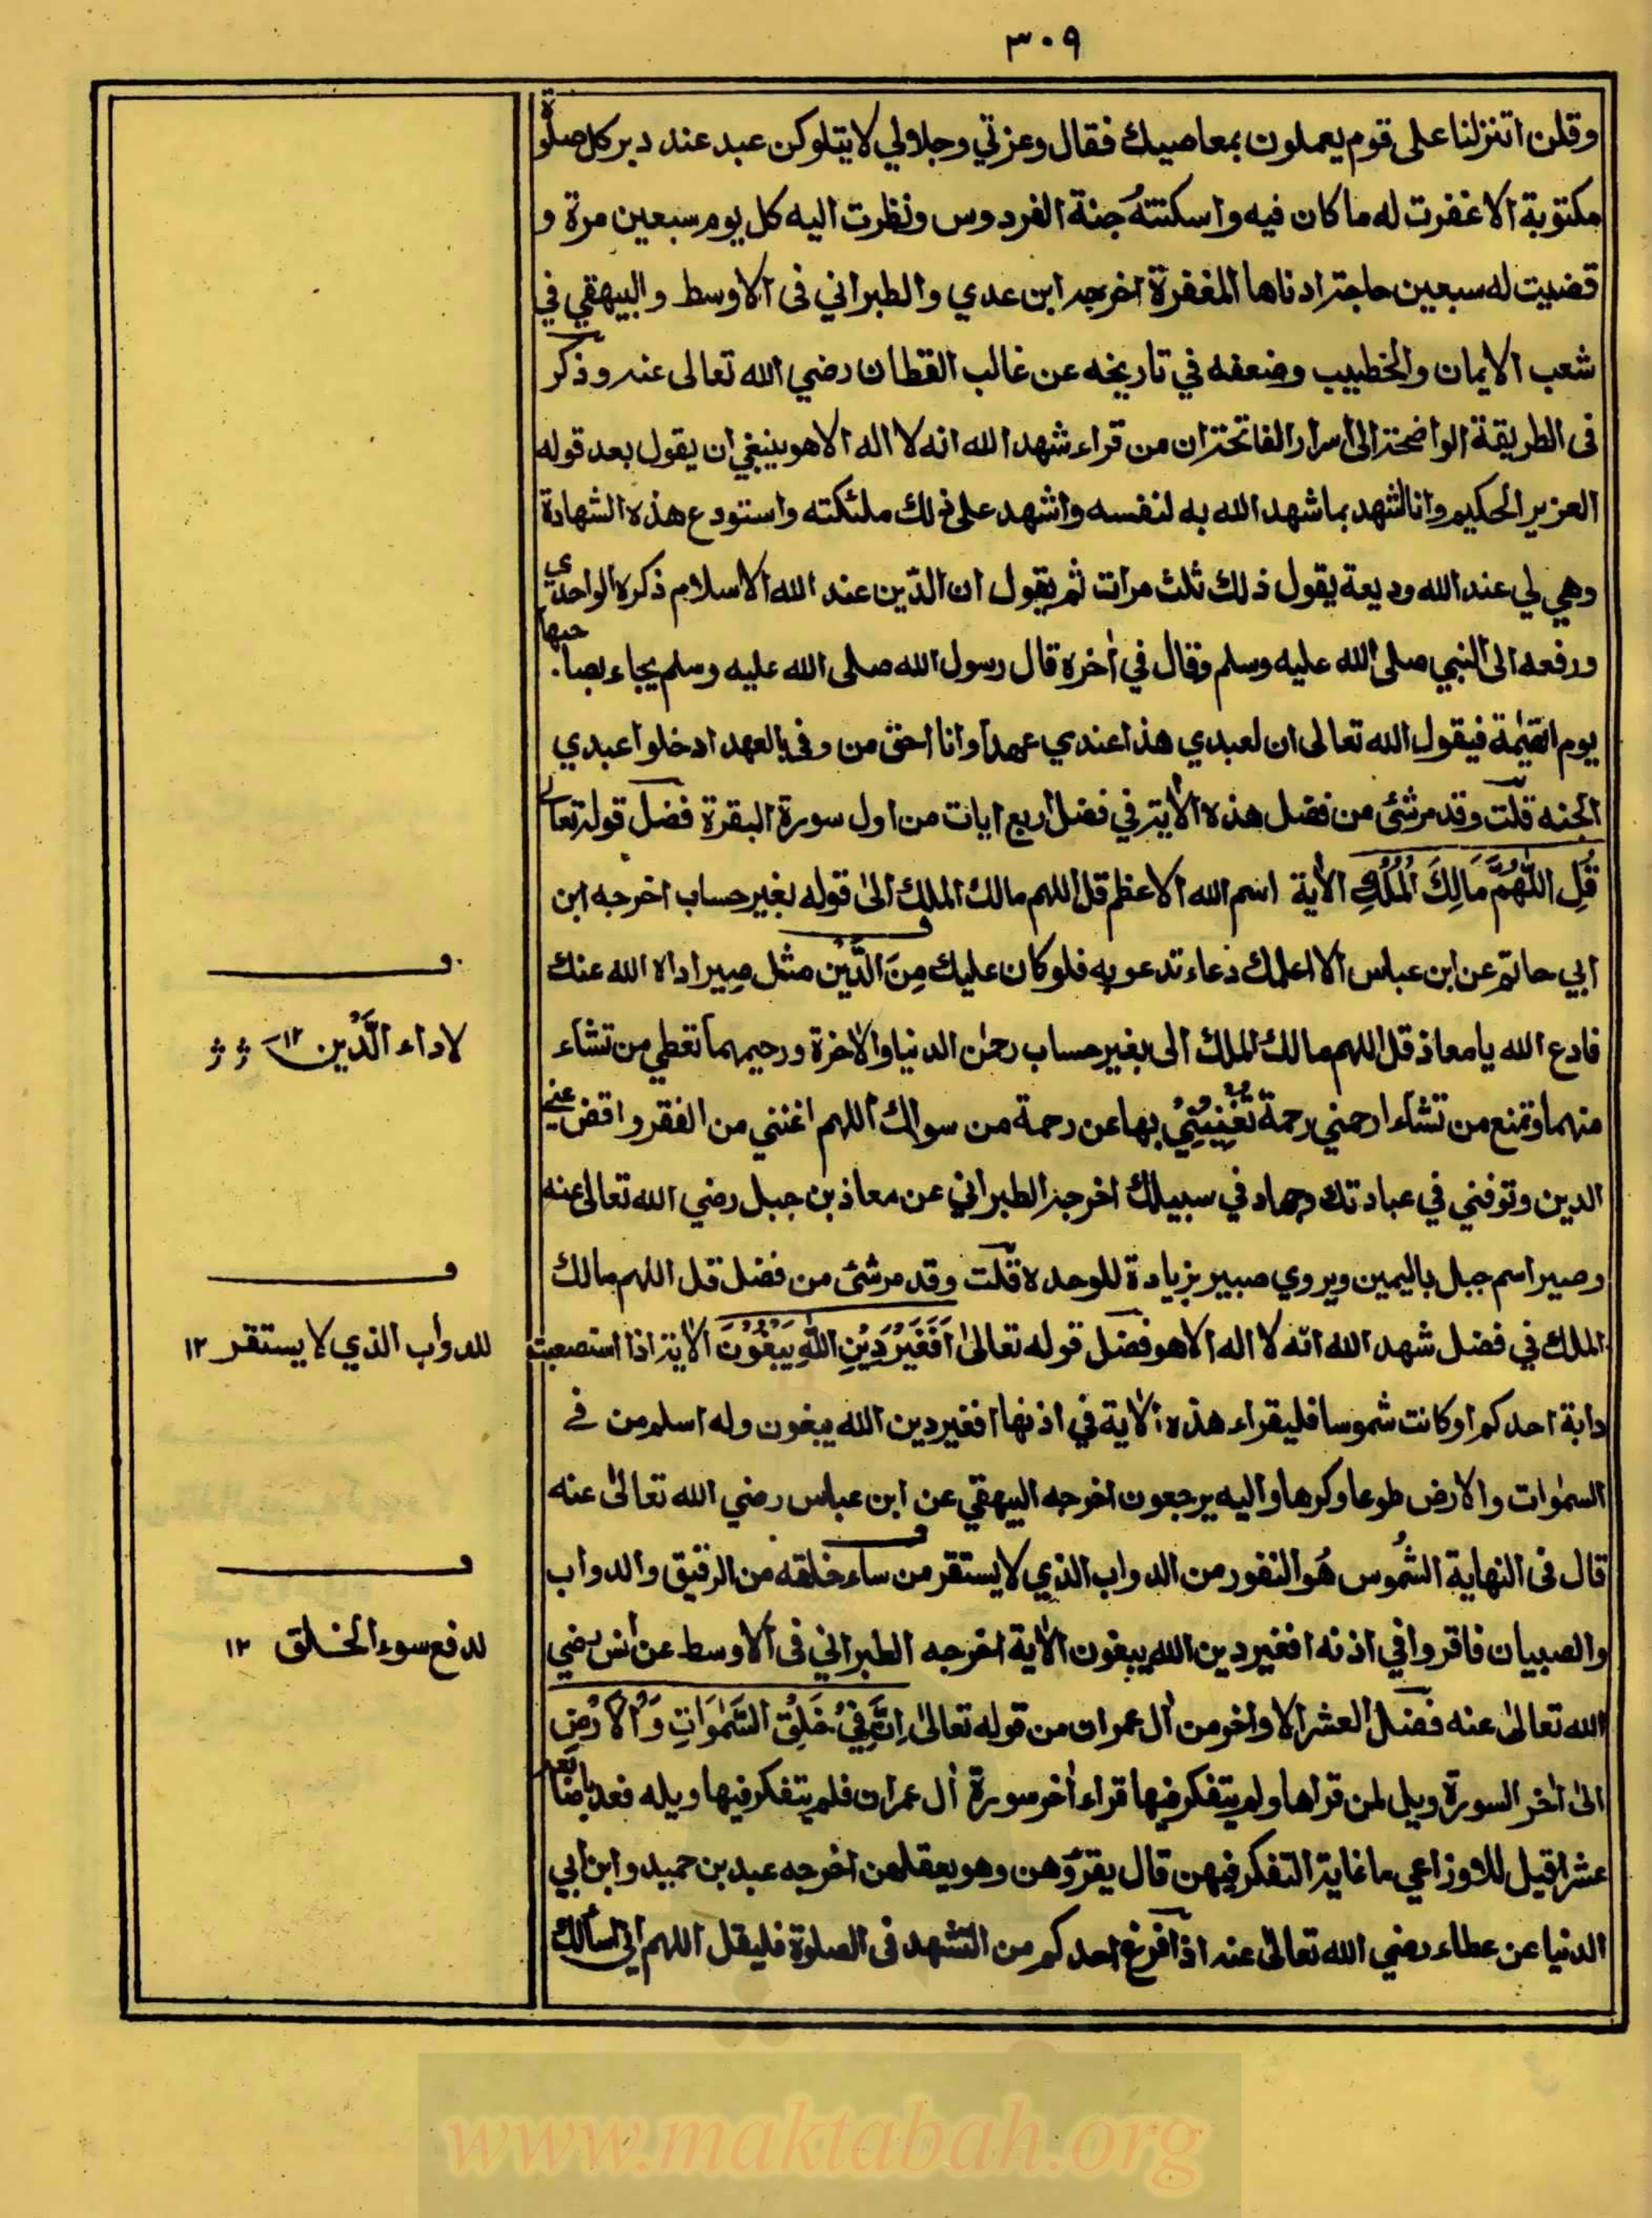 ٣٠٩
وقلن اتنزلنا على قوم يعملون بمعاصيك فقال وعزتي وجلالي لا يتلوكن عبد عند دبر كل صلوة
مكتوبة الا غفرت له ما كان فيه واسكنته جنة الفردوس ونظرت اليه كل يوم سبعين مرة و
قضيت له سبعين حاجة ادناها المغفرة اخرجه ابن عدي والطبراني فى الاوسط والبيهقي في
شعب الايمان والخطيب وضعفه في تاريخه عن غالب القطان رضي الله تعالى عنه وذكر
فى الطريقة الواضحة الى اسرار الفاتحة ان من قراء شهد الله انه لا اله الا هو ينبغي ان يقول بعد قوله
العزيز الحكيم وانا اشهد بما شهد الله به لنفسه واشهد على ذلك ملئكته واستودع هذه الشهادة
وهي لي عند الله وديعة يقول ذلك ثلث مرات ثم يقول ان الدّين عند الله الاسلام ذكره الواحدي
ورفعه الى النبي صلى الله عليه وسلم وقال في اٰخره قال رسول الله صلى الله عليه وسلم يجاء بصاحبها
يوم القيٰمة فيقول الله تعالى ان لعبدي هذا عندي عهدا وانا احق من وفى بالعهد ادخلوا عبدي
الجنه قلت وقد مر شئ من فضل هذه الاٰية في فضل اربع ايات من اول سورة البقرة فضل قوله تعالى
قُلِ اللّٰهُمَّ مَالِكَ الْمُلْكِ الاٰية اسم الله الاعظم قل اللهم مالك الملك الىٰ قوله بغير حساب اخرجه ابن
ابي حاتم عن ابن عباس الا اعلمك دعاء تدعو به فلو كان عليك مِنَ الدَّيْن مثل صِير اداه الله عنك
لاداء الدَّين ١٢
فادع الله يا معاذ قل اللهم مالك الملك الى بغير حساب رحمٰن الدنيا والاٰخرة ورحيمهما تعطي من تشاء
منهما وتمنع من تشاء ارحمني رحمة تُغْنِيْنِيْ بها عن رحمة من سواك اللهم اغنني من الفقر واقض عني
الدين وتوفني في عبادتك وجهاد في سبيلك اخرجه الطبراني عن معاذ بن جبل رضي الله تعالى عنه
وصير اسم جبل باليمين ويروي صبير بزيادة للوحده قلت وقد مر شئ من فضل قل اللهم مالك
الملك في فضل شهد الله انه لا اله الا هو فضل قوله تعالىٰ اَفَغَيْرَ دِيْنِ اللّٰهِ يَبْغُوْنَ الاٰية اذا استصعبت
للدواب الذي لا يستقر ١٢
دابة احدكم او كانت شموسا فليقراء هذه الاٰية في اذنها افغير دين الله يبغون وله اسلم من فے
السمٰوات والارض طوعا وكرها واليه يرجعون اخرجه البيهقي عن ابن عباس رضي الله تعالىٰ عنه
قال فى النهاية الشُموس هُو النفور من الدواب الذي لا يستقر من ساء خلقه من الرقيق والدواب
والصبيان فاقروا في اذنه افغير دين الله يبغون الاٰية اخرجه الطبراني فى الاوسط عن انس رضي
لدفع سوء الخلق ١٢
الله تعالىٰ عنه فضل العشر الاواخر من اٰل عمران من قوله تعالىٰ اِنَّ فِيْ خَلْقِ السَّمٰوَاتِ وَالْاَرْضِ
الىٰ اٰخر السورة ويل لمن قراها ولم يتفكر فيها قراء اٰخر سورة اٰل عمران فلم يتفكر فيها ويله فعد باصابعه
عشرا قيل للاوزاعي ما غاية التفكر فيهن قال يقرؤهن وهو يعقلهن اخرجه عبد بن حميد وابن ابي
الدنيا عن عطاء رضي الله تعالىٰ عنه اذا فرغ احدكم من التشهد فى الصلوة فليقل اللهم اني اسألك
www.maktabah.org